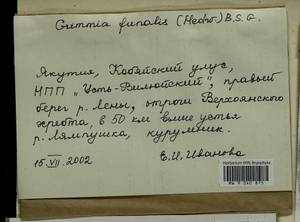 Grimmia funalis (Hedw.) B.S.G.
Якутия, Кобяйский улус,
НПП "Усть-Вилюйский", правый
берег р. Лены, отроги Верхоянского
хребта, в 50 км выше устья
р. Лямпушка, курумник.
15.VII.2002
Е.И. Иванова